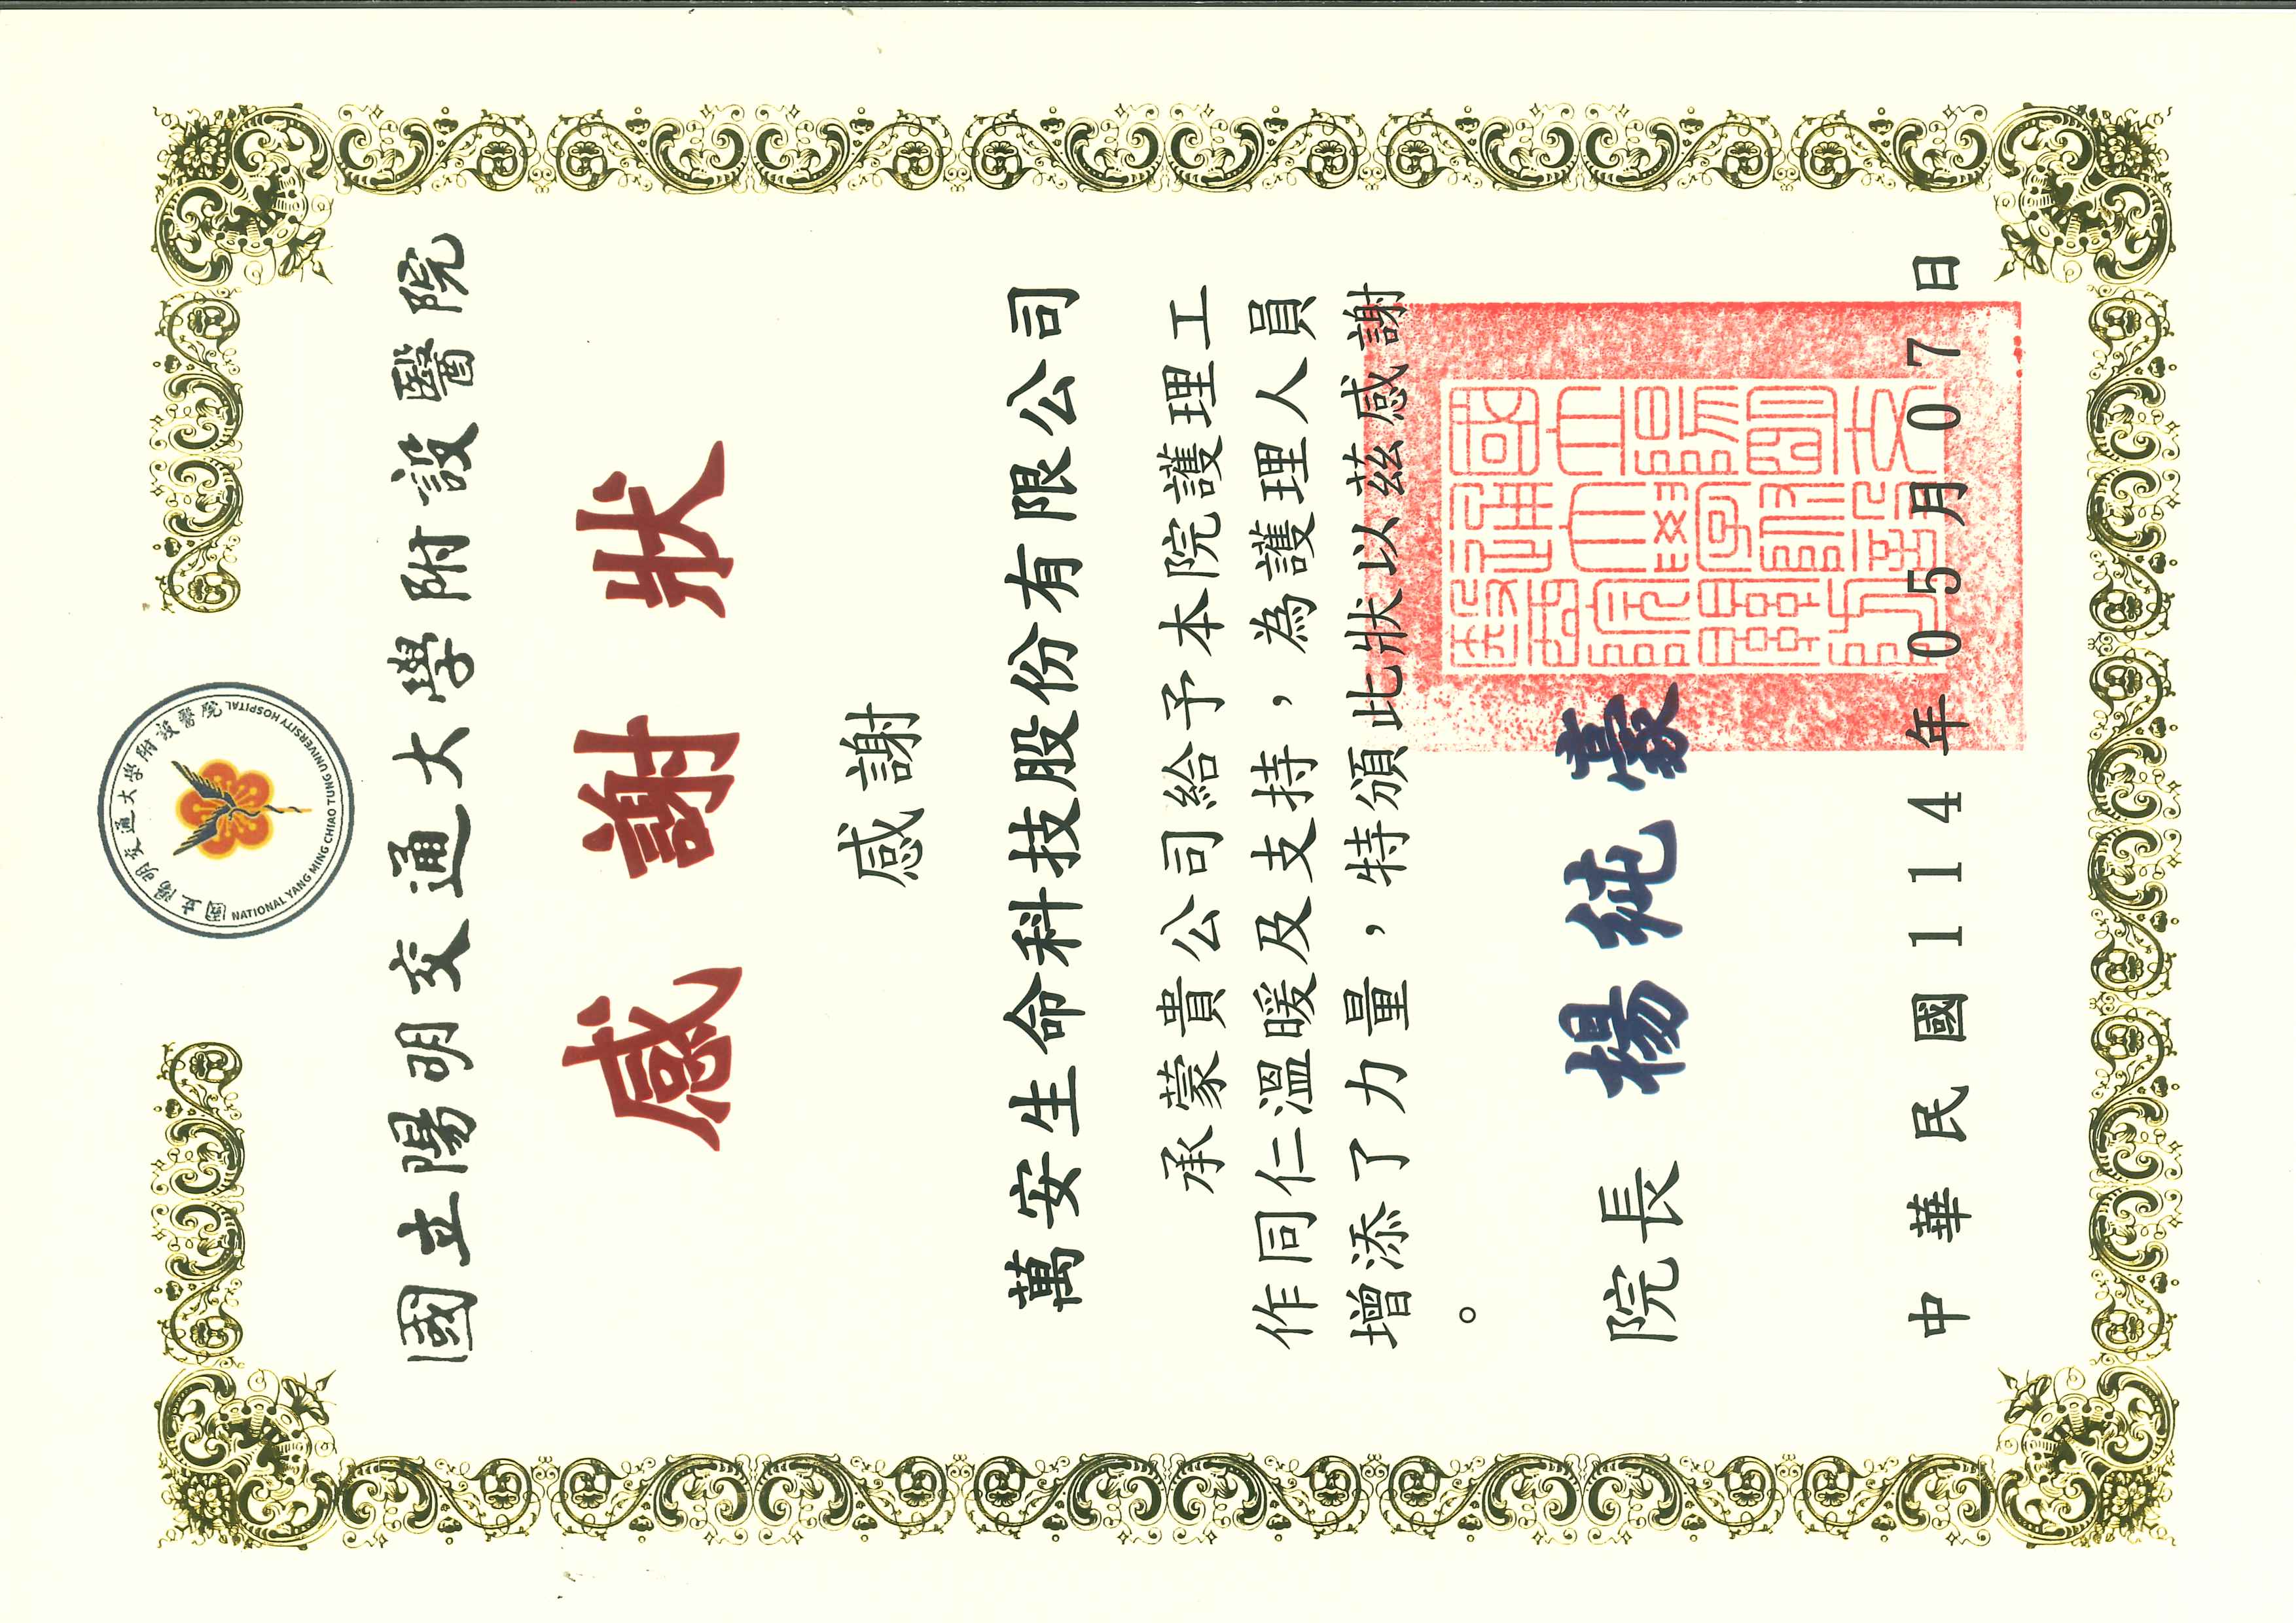 國立陽明交通大學附設醫院
NATIONAL YANG MING CHIAO TUNG UNIVERSITY HOSPITAL
國立陽明交通大學附設醫院
感謝狀
感謝
萬安生命科技股份有限公司
承蒙貴公司給予本院護理工
作同仁溫暖及支持，為護理人員
增添了力量，特頒此狀以茲感謝
。
院長 楊純豪
中華民國114年05月07日